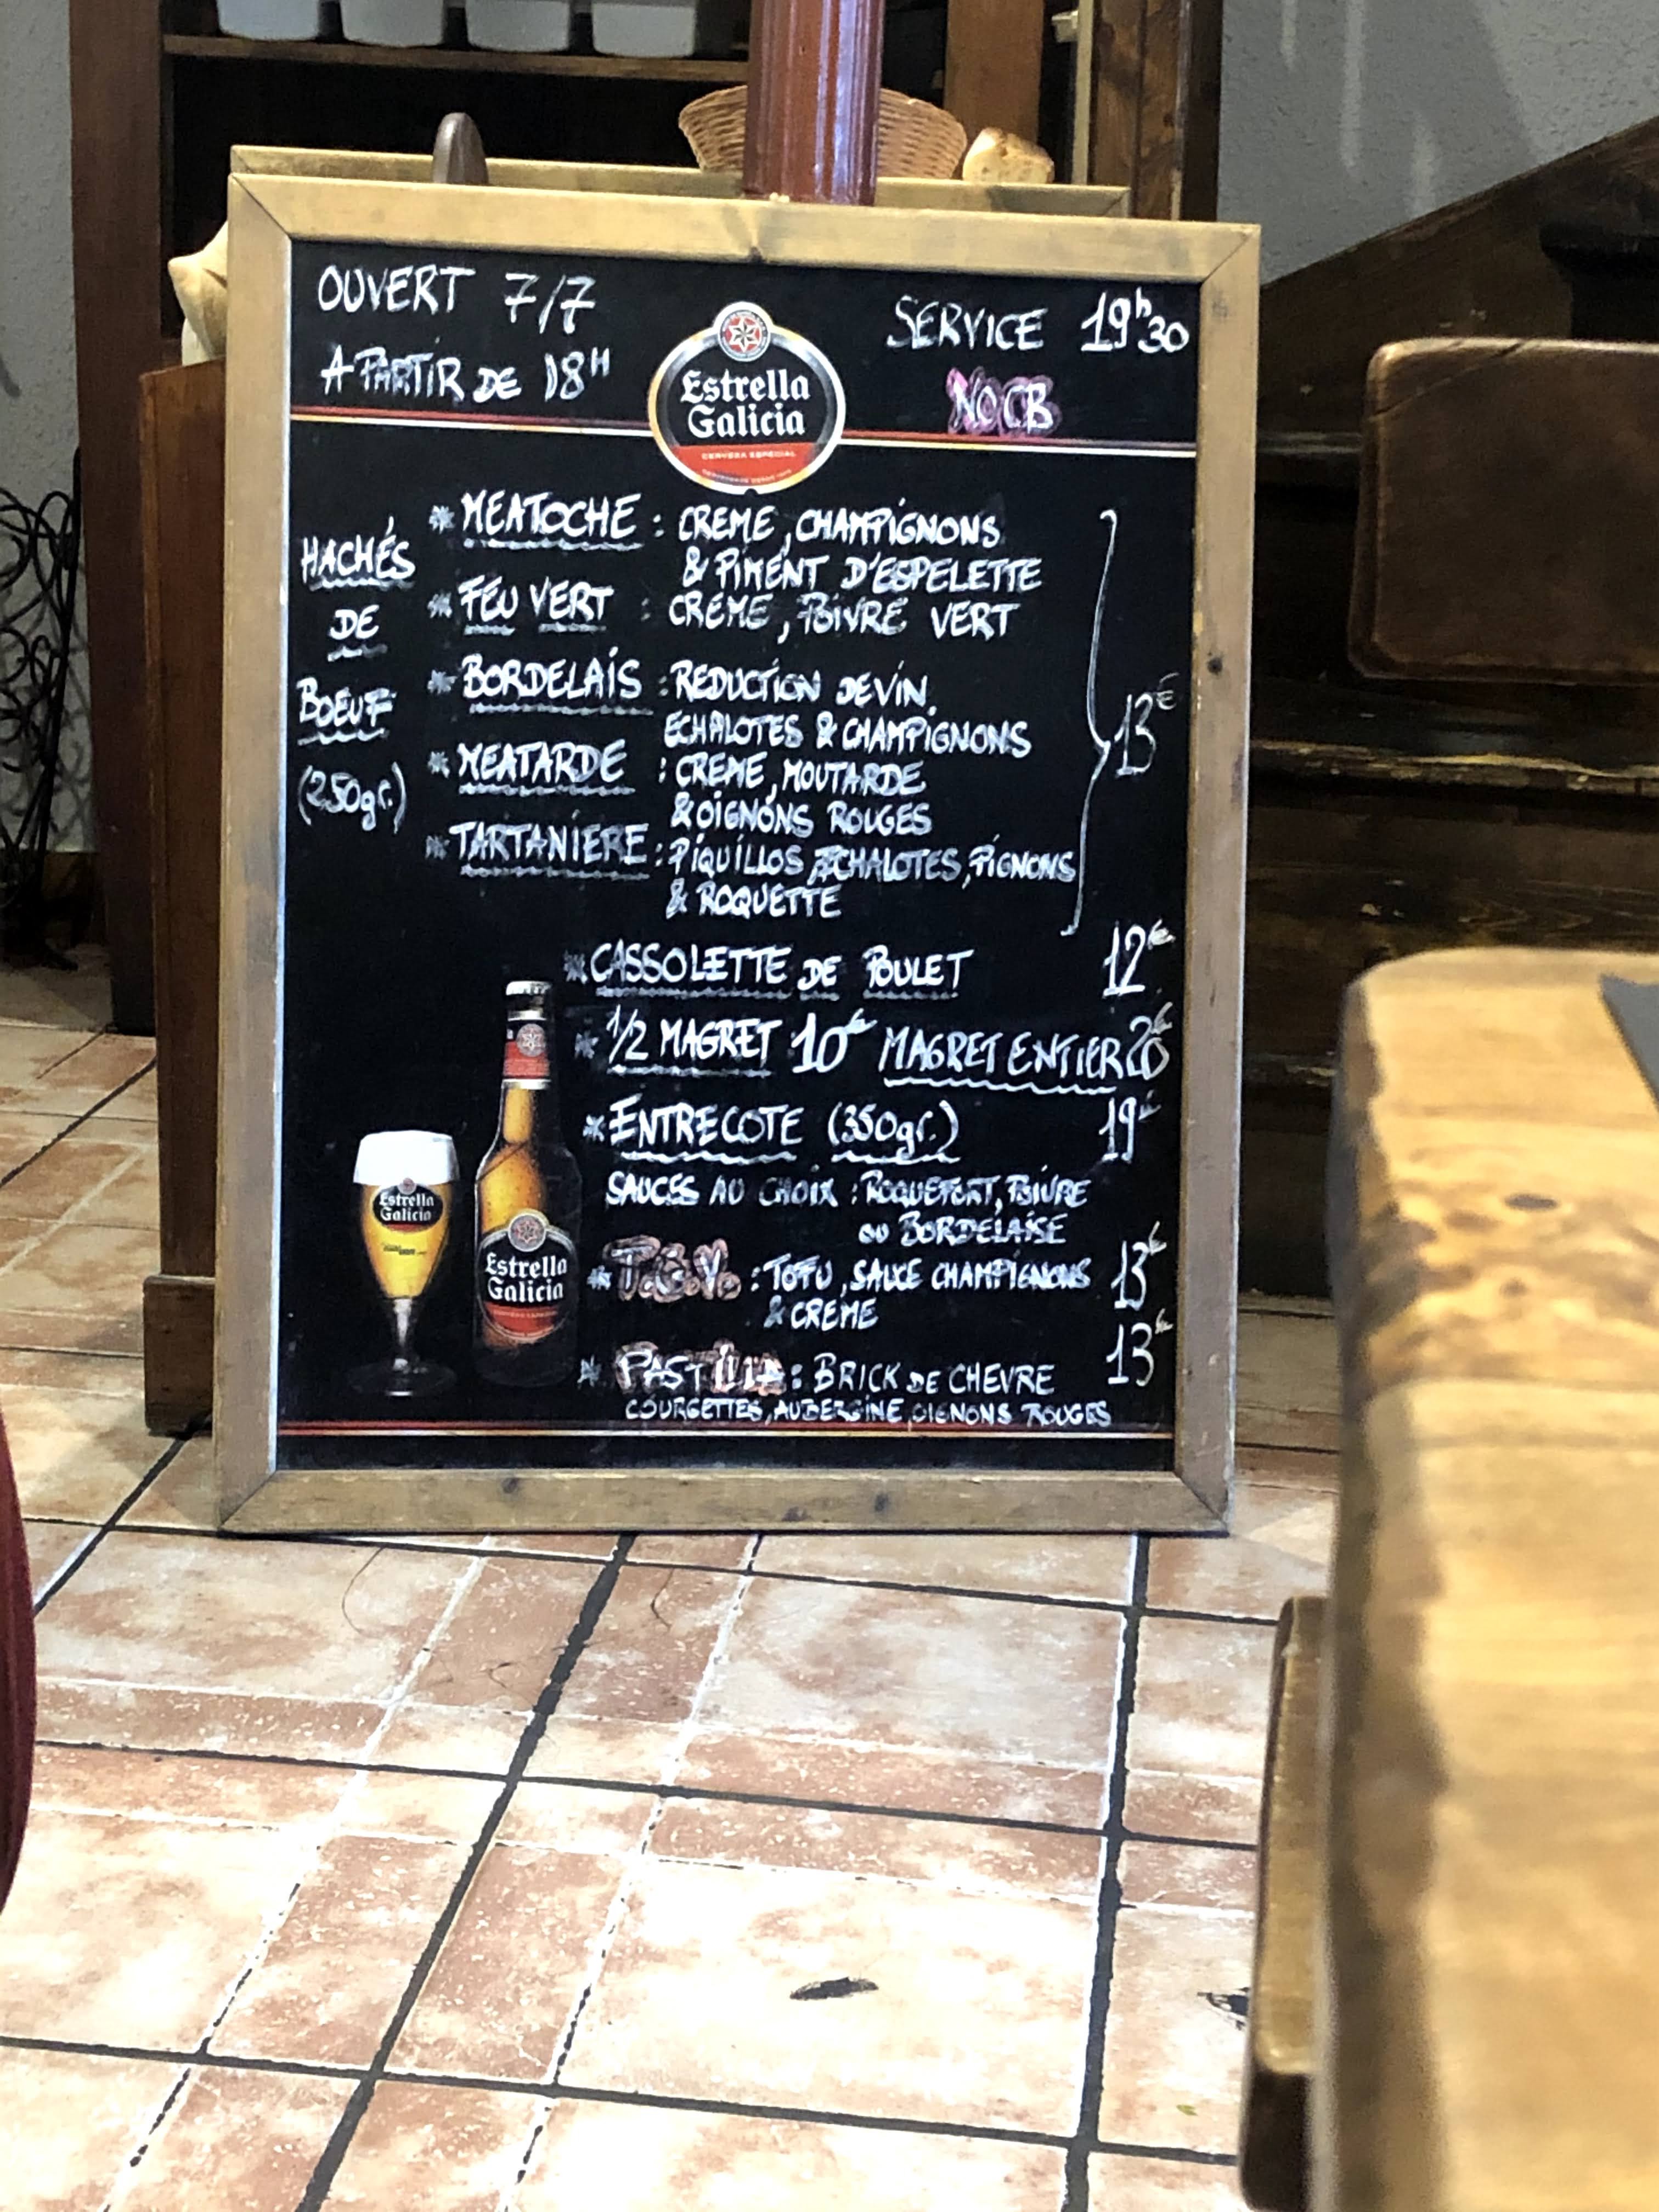 OUVERT 7/7
A PARTIR DE 18H
SERVICE 19h30
NO CB
Estrella
Galicia
CERVEZA ESPECIAL
HACHÉS
DE
BOEUF
(250gr.)
* MEATOCHE : CREME, CHAMPIGNONS
& PIMENT D'ESPELETTE
* FEU VERT : CREME, POIVRE VERT
* BORDELAIS : REDUCTION DE VIN,
ECHALOTES & CHAMPIGNONS
* MEATARDE : CREME, MOUTARDE
& OIGNONS ROUGES
* TARTANIERE : PIQUILLOS, ECHALOTES, PIGNONS
& ROQUETTE
13€
* CASSOLETTE DE POULET 12€
* 1/2 MAGRET 10€ MAGRET ENTIER 20€
* ENTRECOTE (350gr.) 19€
SAUCES AU CHOIX : ROQUEFORT, POIVRE
OU BORDELAISE
* T.G.V. : TOFU, SAUCE CHAMPIGNONS 13€
& CREME
* PASTILLA : BRICK DE CHEVRE 13€
COURGETTES, AUBERGINE, OIGNONS ROUGES
Estrella
Galicia
Estrella
Galicia